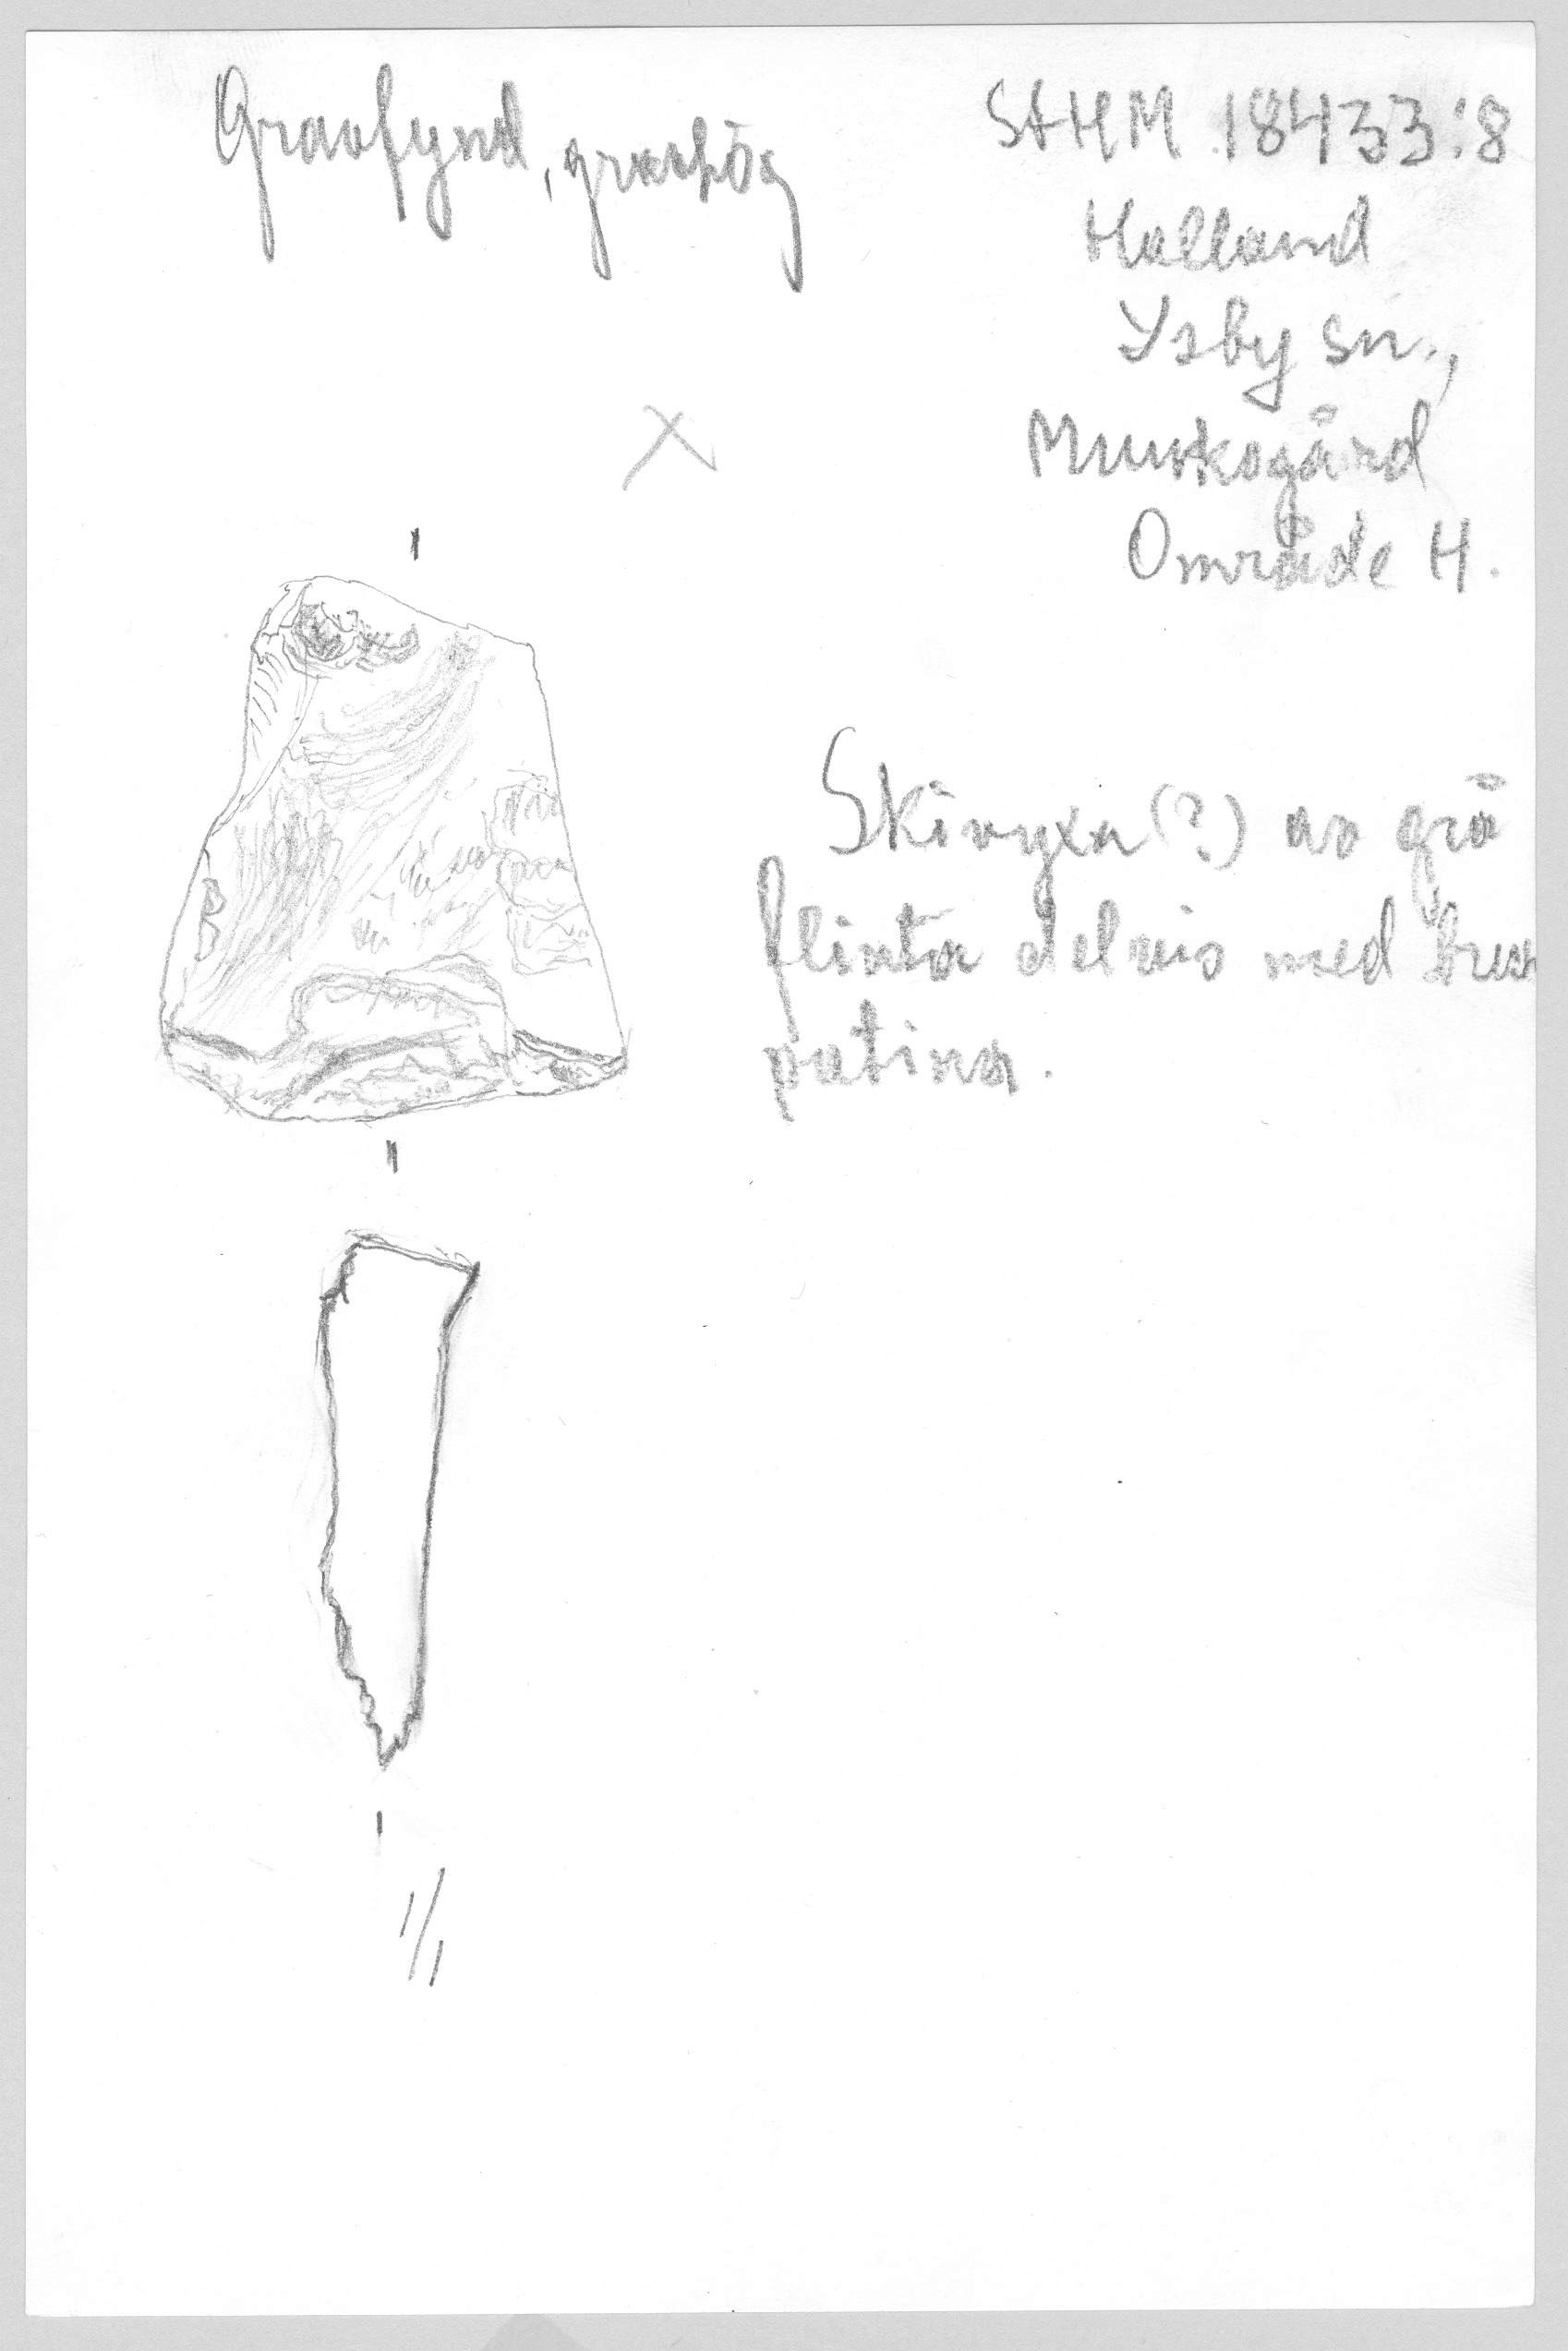 Gravfynd, gravhög
StHM 18433:8
Halland
Ysby sn.,
Munkagård
Område H.
X
Skivyxa(?) av grå
flinta delvis med
patina.
1/1